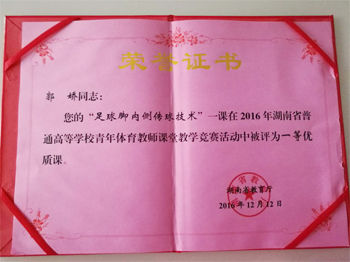 荣誉证书
郭 娇同志：
您的“足球脚内侧传球技术”一课在2016年湖南省普
通高等学校青年体育教师课堂教学竞赛活动中被评为一等优
质课。
湖南省教育厅
2016年12月12日